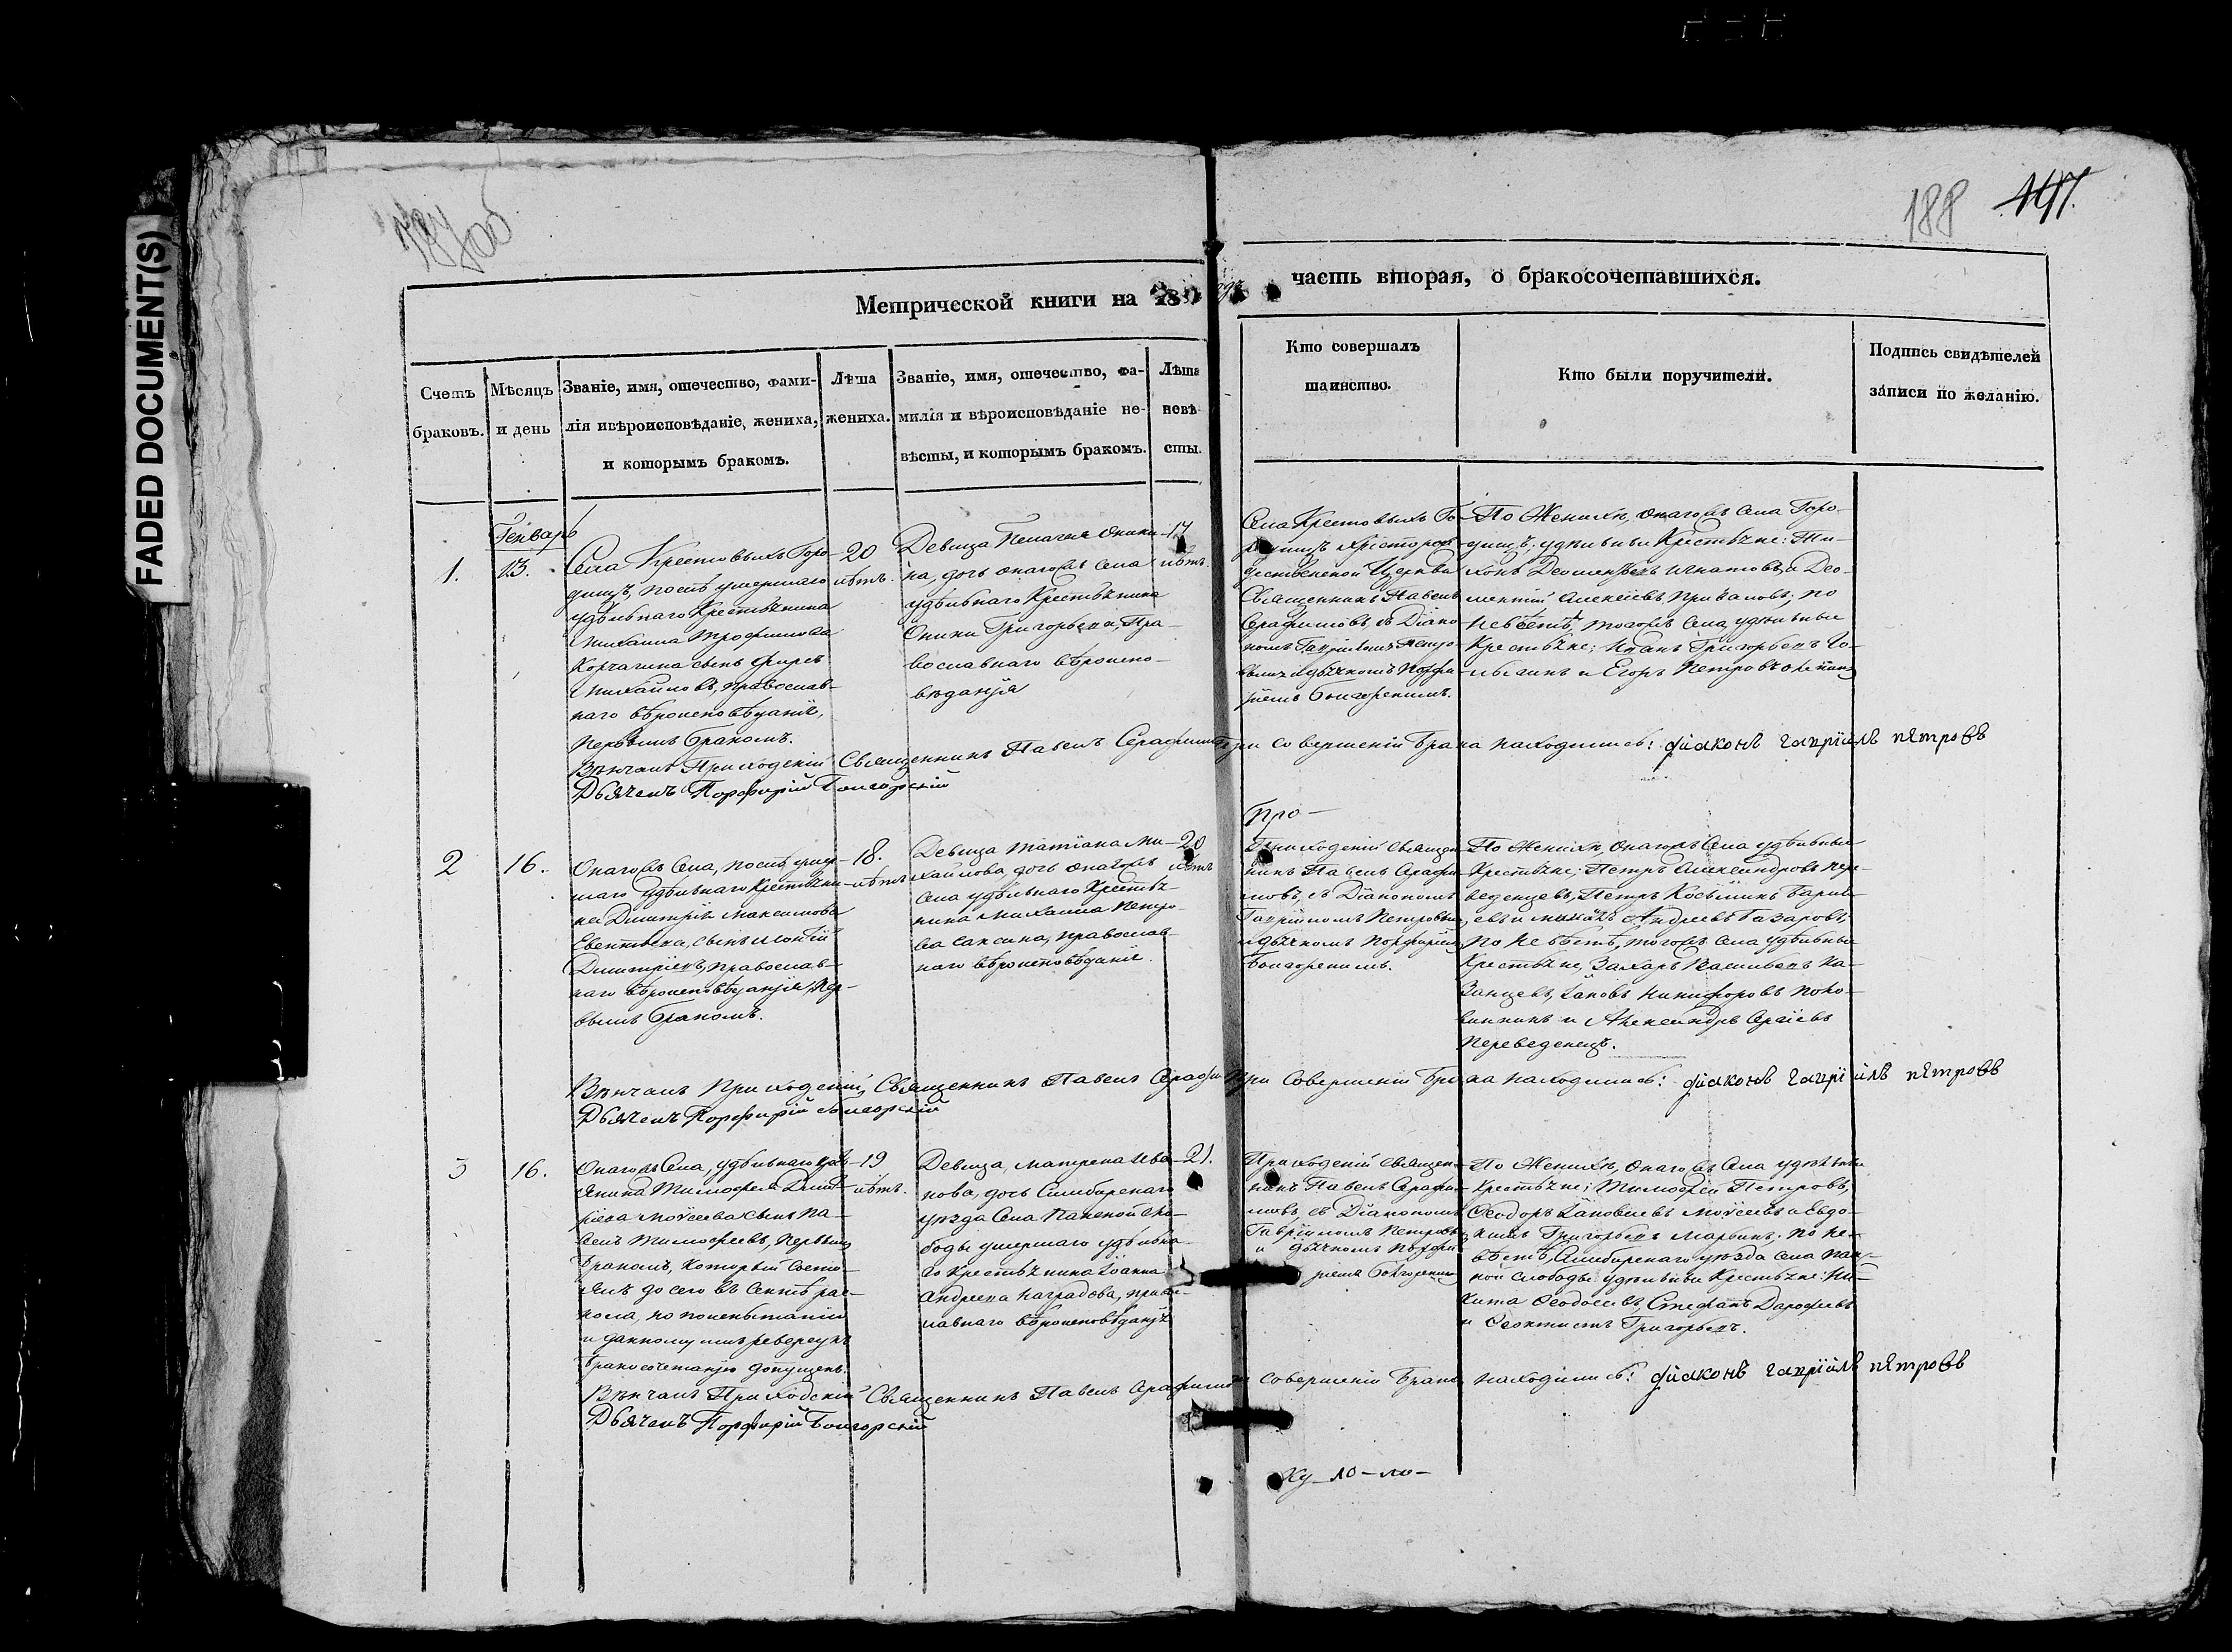 FADED DOCUMENT(S)
188
Метрической книги на 18
часть вторая, о бракосочетавшихся.
Счетъ
браковъ.
Мѣсяцъ
и день
Званіе, имя, отечество, фами-
лія ивѣроисповѣданіе, жениха,
и которымъ бракомъ.
Лѣта
жениха.
Званіе, имя, отечество, фа-
милія и вѣроисповѣданіе не-
вѣсты, и которымъ бракомъ.
Лѣта
невѣ
сты.
Кто совершалъ
таинство.
Кто были поручители.
Подпись свидѣтелей
записи по желанію.
Генварь
1.
13.
Села Крестовыхъ Горо-
дищъ, послѣ умершаго
удѣльнаго Крестьянина
Михаила Трофимова
Корчагина сынъ
Михайловъ, православ-
наго вѣроисповѣданія,
первымъ бракомъ.
20
лѣтъ.
Девица Пелагея Оники-
на, дочь онагожъ села
удѣльнаго Крестьянина
Оники Григорьева, Пра-
вославнаго вѣроиспо-
вѣданія
17
лѣтъ.
Села Крестовыхъ Го-
родищъ Христорож-
дественской Церкви
Священникъ Павелъ
Серафимовъ съ Діако-
номъ Гавріиломъ Петро-
вымъ и дьячкомъ Порфи-
ріемъ Болгорскимъ.
По Женихѣ, онагожъ села Горо-
дищъ, удѣльные Крестьяне: Ти-
хонъ Деомидовъ Игнатовъ и Део-
ментій Алексѣевъ Приваловъ; по
Невѣстѣ, тогожъ села удѣльные
Крестьяне; Иванъ Григорьевъ
и Егоръ Петровъ
Вѣнчалъ Приходскій Священникъ Павелъ Серафимовъ
При совершеніи брака находились: діаконъ гавріилъ петровъ
Дьячекъ Порфирій Болгорскій
2
16.
Онагожъ Села, послѣ умер-
шаго удѣльнаго Крестьяни-
на Димитрія Максимова
сынъ
Димитріевъ, православ-
наго вѣроисповѣданія, пер-
вымъ бракомъ.
18.
лѣтъ
Девица Татіана Ми-
хайлова, дочь онагожъ
села удѣльнаго Крестья-
нина Михаила Петро-
ва Саксина, православ-
наго вѣроисповѣданія.
20
лѣтъ
Про-
Приходскій Священ-
никъ Павелъ Серафи-
мовъ, съ Діакономъ
Гавріиломъ Петровымъ
и дьячкомъ Порфиріемъ
Болгорскимъ.
По Женихѣ, онагожъ Села удѣльные
Крестьяне: Петръ Александровъ пер-
веденцевъ, Петръ Косьминъ
Андреевъ Базаровъ,
по Невѣстѣ, тогожъ села удѣльные
Крестьяне, Захаръ Васильевъ Ка-
занцевъ, Іаковъ Никифоровъ
и Александръ Сергіевъ
Переведенецъ.
Вѣнчалъ Приходскій, Священникъ Павелъ Серафи
При Совершеніи бра-ка находились: діаконъ гавріилъ петровъ
Дьячекъ Порфирій Болгорскій
3
16.
Онагожъ Села, удѣльнаго кресть-
янина Тимофея Дмит-
ріева Моусеева сынъ Па-
велъ Тимофеевъ, первымъ
бракомъ, который состо-
ялъ до сего въ сектѣ рас-
кола, но по испытаніи
и данному имъ реверсу къ
бракосочетанію допущенъ.
19
лѣтъ.
Девица, Матрена Ива-
нова, дочь Симбирскаго
уѣзда Села Панской Сло-
боды умершаго удѣльна-
го крестьянина Іоанна
Андреева Наградова, право-
славнаго вѣроисповѣданія
21.
Приходскій Священ-
никъ Павелъ Серафи-
мовъ, съ Діакономъ
Гавріиломъ Петровымъ
и дьячкомъ Порфи-
ріемъ Болгорскимъ
По Женихѣ, онагожъ Села удѣльные
Крестьяне; Тимофей Петровъ,
Ѳеодоръ Іаковлевъ Моусеевъ и Евдо-
кимъ Григорьевъ Марьинъ; по Не-
вѣстѣ, Симбирскаго уѣзда села Пан-
ской слободы удѣльные Крестьяне: Ни-
кита Ѳеодосіевъ, Стефанъ Дорофеевъ
и Ѳеоктистъ Григорьевъ.
Вѣнчалъ Приходскій Священникъ Павелъ Серафимовъ
совершеніи брака находились: діаконъ гавріилъ петровъ
Дьячекъ Порфирій Болгорскій